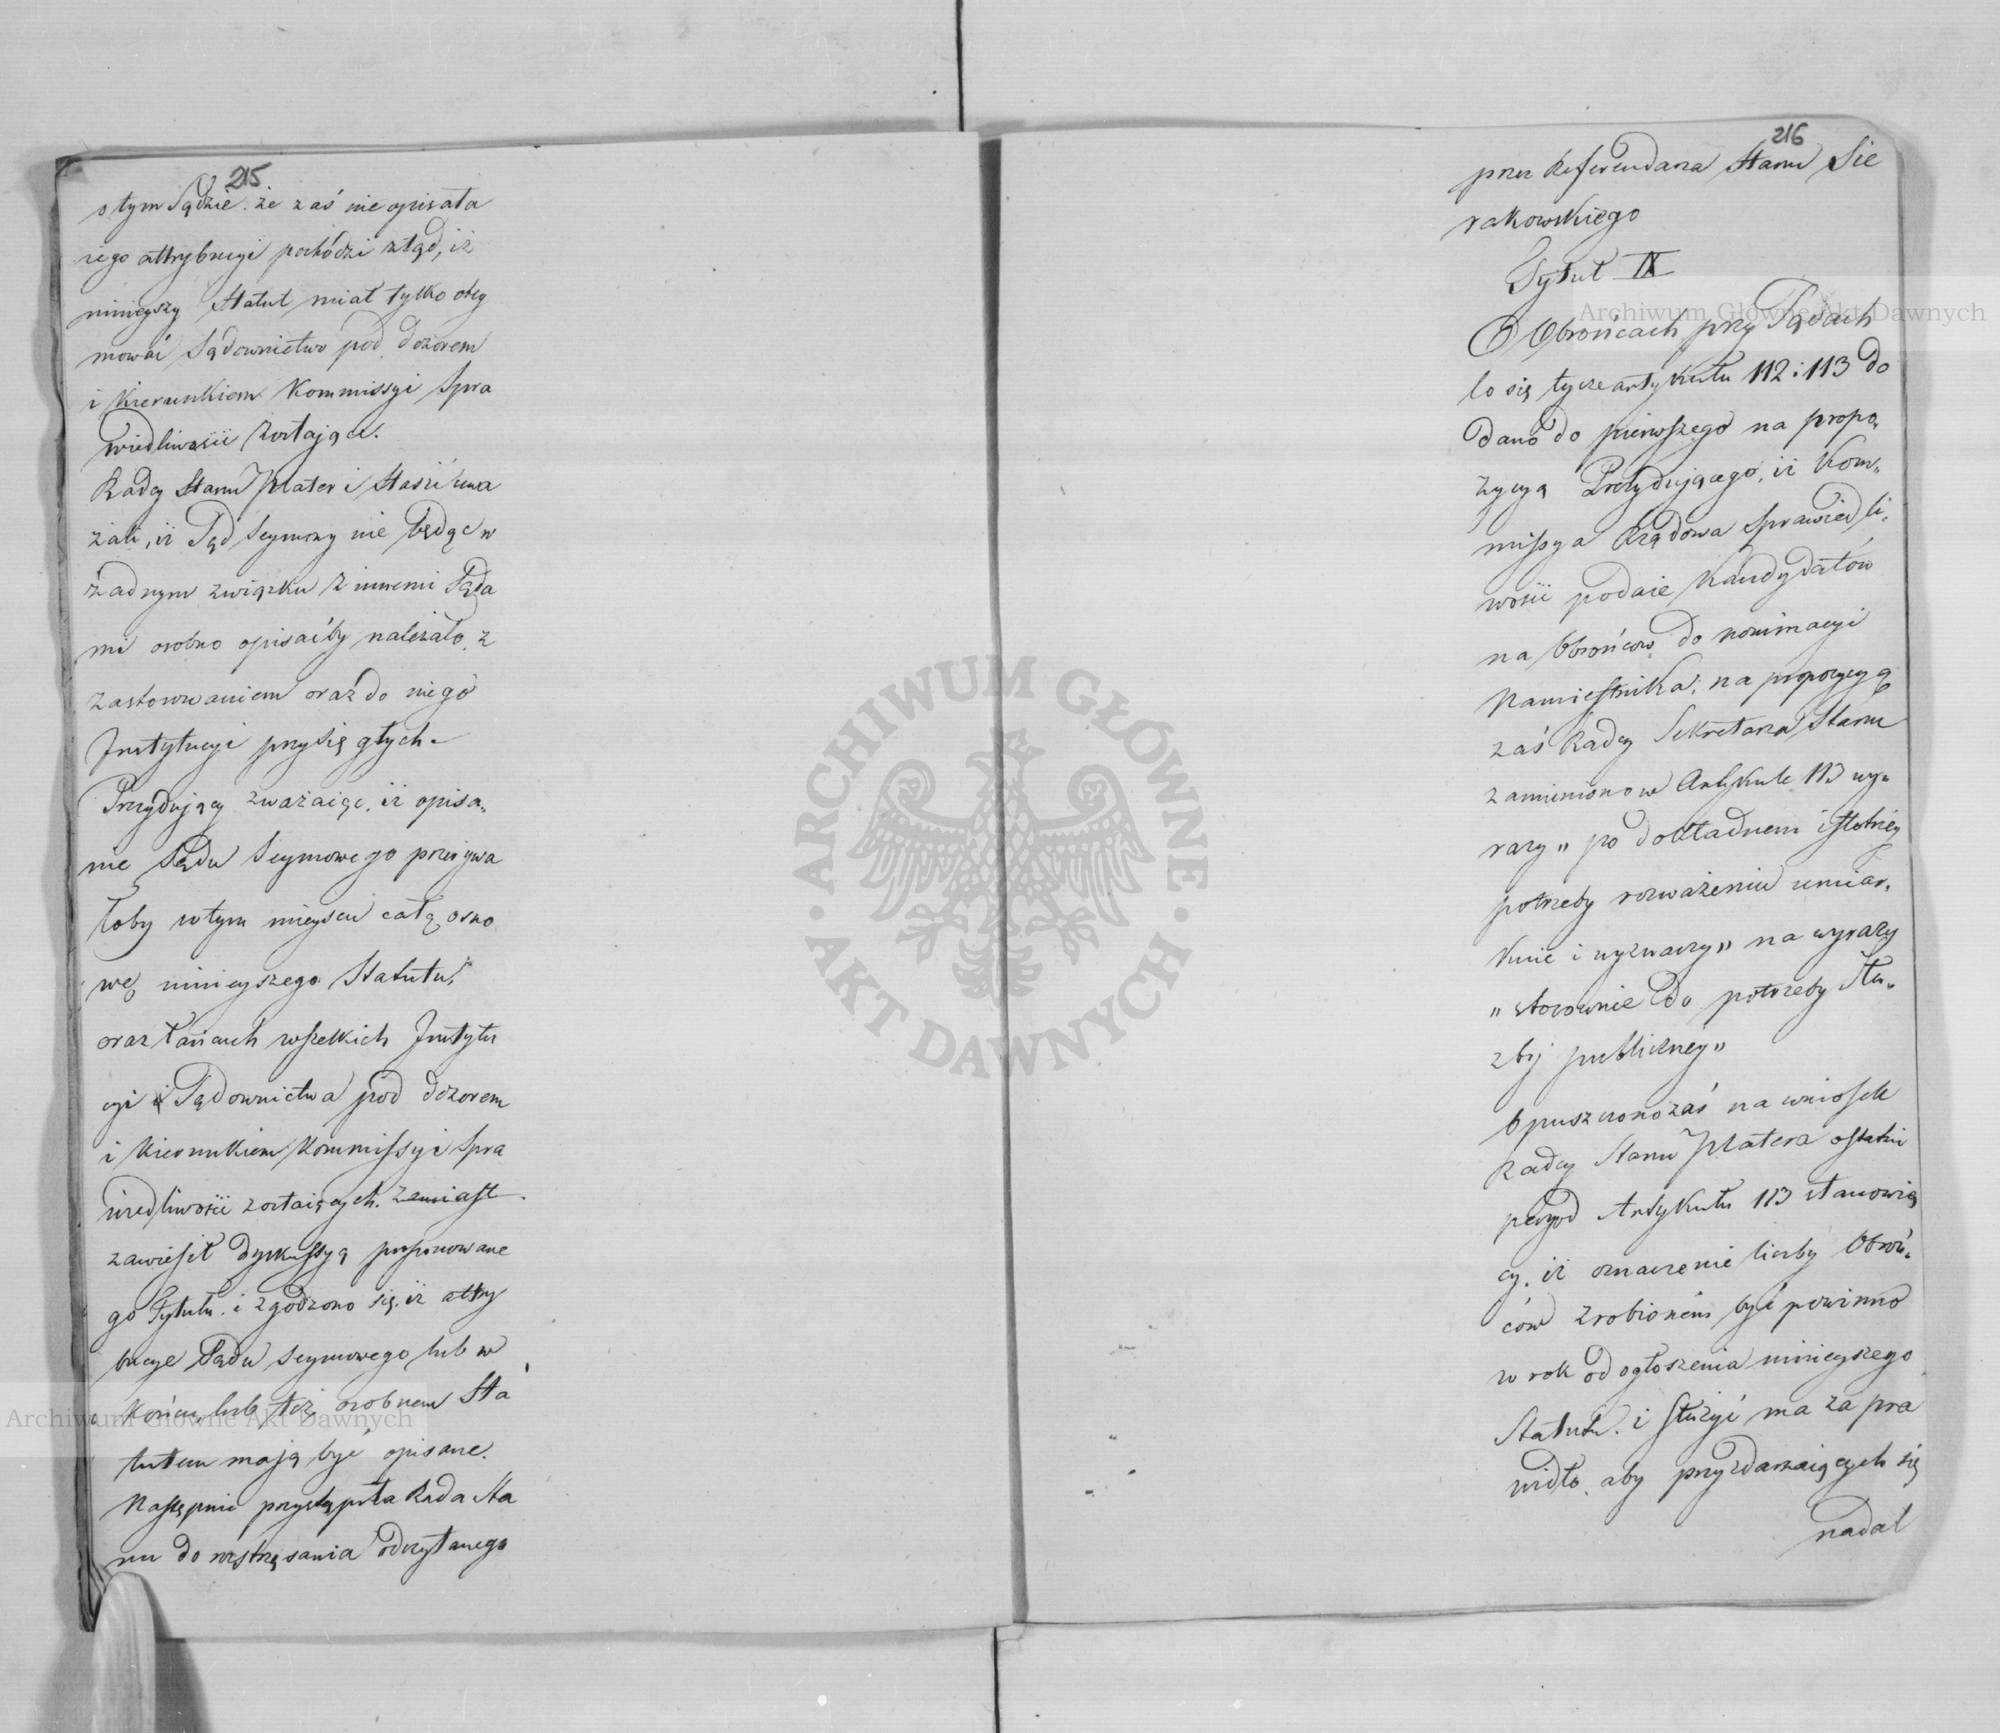 215
o tym Sądzie. że zaś nie opisała
iego attrybucyi pochódzi ztąd, iż
ninieyszy Statut miał tylko obey
mować Sądownictwo pod dozorem
i Kierunkiem Kommissyi Spra
wiedliwości zostające.
Radcy Stanu Plater i Staszic uwa
żali, iż Sąd Seymowy nie będąc w
żadnym związku z innemi Sąda
mi osobno opisaćby należało, z
zastosowaniem oraz do niego
Instytucyi przysięgłych.
Prezyduiący zważaiąc, iż opisa„
nie Sądu Seymowego przerywa
łoby w tym mieyscu całą osno
wę ninieyszego Statutu,
oraz łańcuch wszelkich Instytu
cyi Sądownictwa pod dozorem
i Kierunkiem Kommissyi Spra
wiedliwości zostaiących. zamiast
zawiesił dyskussyą proponowane
go Tytułu. i zgodzono się, iż attry
bucye Sądu Seymowego, lub w
Końcu, lub też osobnem Sta
tutem mają być opisane.
Następnie przystąpiła Rada Sta
nu do roztrząsania odczytanego
216
przez Referendarza Stanu Sie
rakowskiego
Tytuł IX
O Obrońcach przy Sądach
Co się tycze artykułu 112 i 113 do
dano do pierwszego na propo„
zycyą Prezydującego, iż Kom„
missya Rządowa Sprawiedli„
wości podaie Kandydatów
na Obrońców do nominacyi
Namiestnika, na propozycyą
zaś Radcy Sekretarza Stanu
zamieniono w Artykule 113 wy„
razy „ po dokładnem istotney
potrzeby rozważeniu umiar„
kuie i wyznaczy„ na wyrazy
„ stosownie do potrzeby Słu„
zby publiczney„
Opuszczono zaś na wniosek
Radcy Stanu Platera ostatni
peryod Artykułu 113 stanowią
cy, iż oznaczenie liczby Obroń„
ców zrobioném być powinno
w rok od ogłoszenia ninieyszego
Statutu. i służyć ma za pra
widło, aby przyzdarzaiących się
nadal
Archiwum Główne Akt Dawnych
ARCHIWUM GŁÓWNE • AKT DAWNYCH •
Archiwum Główne Akt Dawnych